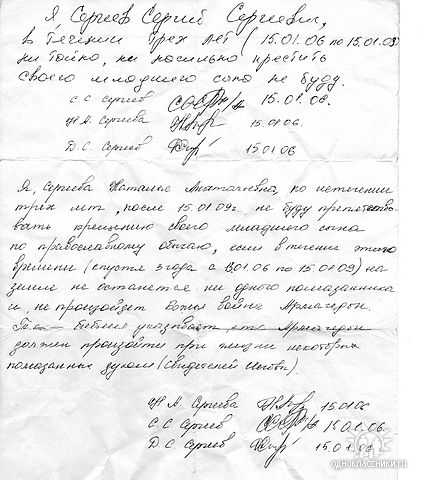 Я, Сергеев Сергей Сергеевич,
в течении трех лет (15.01.06 по 15.01.09)
ни тайно, ни насильно крестить
своего младшего сына не буду.
С.С Сергеев 15.01.06.
Н.А. Сергеева 15.01.06.
Д.С. Сергеев 15.01.06
Я, Сергеева Наталья Анатольевна, по истечении
трех лет, после 15.01.09г. не буду препятство-
вать крещению своего младшего сына
по православному обычаю, если в течение этого
времени (спустя 3 года с 15.01.06 по 15.01.09) на
земле не останется ни одного помазанника
и, не произойдет Божья война Армагедон.
Библия указывает, что Армагедон
должен произойти при жизни некоторых
помазанных духом (Свидетелей Иеговы).
Н.А. Сергеева 15.01.06
С.С. Сергеев 15.01.06.
Д.С. Сергеев 15.01.06.
одноклассники.ru